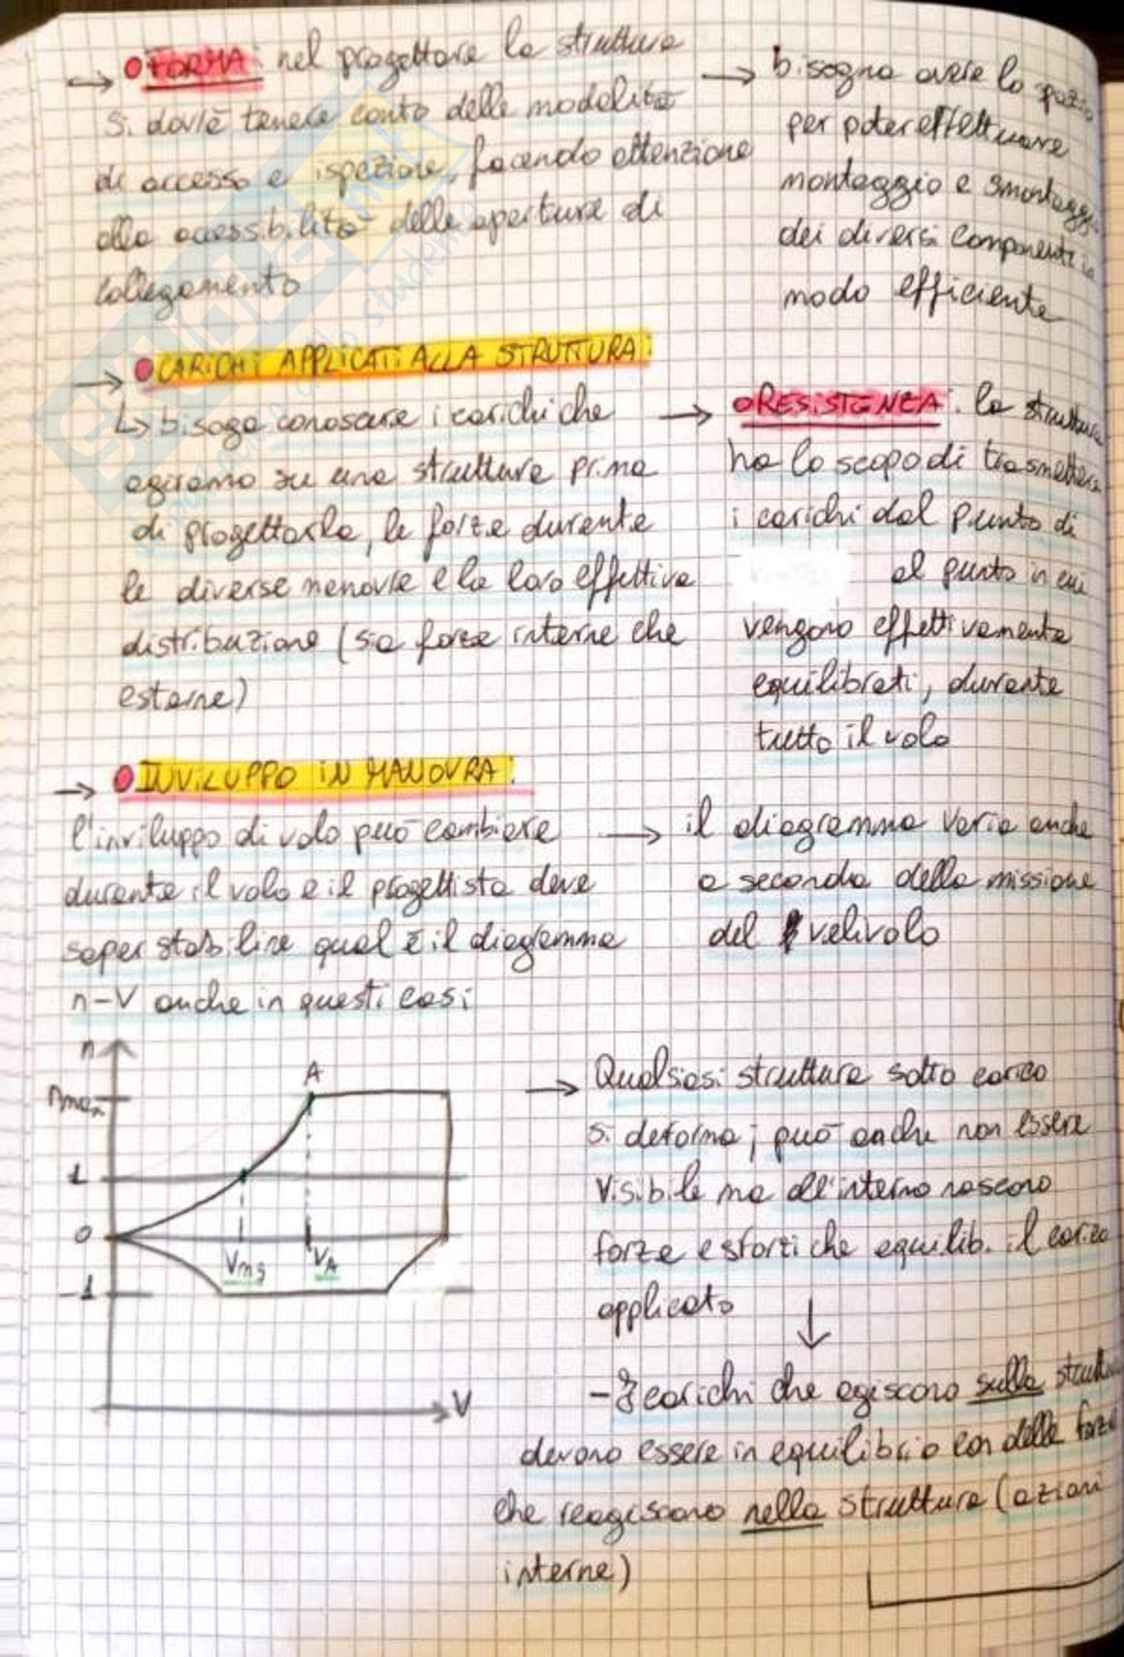 → • FORMA: nel progettare la struttura
si dovrà tenere conto delle modalità
di accesso e ispezione, facendo attenzione
alla accessibilità delle aperture di
collegamento
→ bisogna avere lo spazio
per poter effettuare
montaggio e smontaggio
dei diversi componenti in
modo efficiente
→ • CARICHI APPLICATI ALLA STRUTTURA:
↳ bisoga conoscere i carichi che
agiranno su una struttura prima
di progettarla, le forze durante
le diverse manovre e la loro effettiva
distribuzione (sia forze interne che
esterne)
→ • RESISTENZA: la struttura
ha lo scopo di trasmettere
i carichi dal punto di
al punto in cui
vengono effettivamente
equilibrati, durante
tutto il volo
→ • INVILUPPO IN MANOVRA:
l'inviluppo di volo può cambiare
durante il volo e il progettista deve
saper stabilire qual è il diagramma
n-V anche in questi casi
→ il diagramma varia anche
a seconda della missione
del velivolo
n
nmax
A
1
0
Vms
VA
-1
V
→ Qualsiasi struttura sotto carico
si deforma; può anche non essere
visibile ma all'interno nascono
forze e sforzi che equilib. il carico
applicato
↓
- I carichi che agiscono sulla struttura
devono essere in equilibrio con delle forze
che reagiscono nella struttura (azioni
interne)